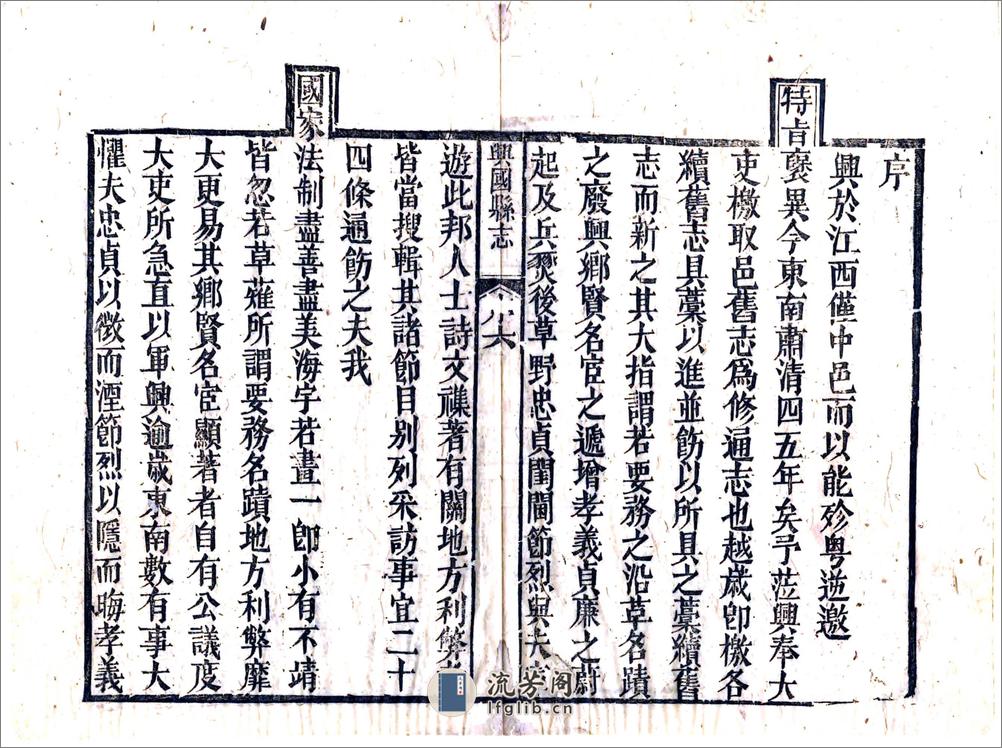 序
興於江西僅中邑而以能殄粵逆邀
特旨襃異今東南肅清四五年矣予蒞興奉大
吏檄取邑舊志爲修通志也越歲卽檄各
續舊志具藁以進並飭以所具之藁續舊
志而新之其大指謂若要務之沿革名蹟
之廢興鄉賢名宦之遞增孝義貞廉之蔚
起及兵燹後草野忠貞閨閫節烈與夫
興國縣志
序
遊此邦人士詩文襍著有關地方利弊
皆當搜輯其諸節目别列采訪事宜二十
四條通飭之夫我
國家法制盡善盡美海宇若畫一卽小有不靖
皆忽若草薙所謂要務名蹟地方利弊靡
大更易其鄉賢名宦顯著者自有公議度
大吏所急直以軍興逾歲東南數有事大
懼夫忠貞以微而湮節烈以隱而晦孝義
流芳阁
lfglib.cn